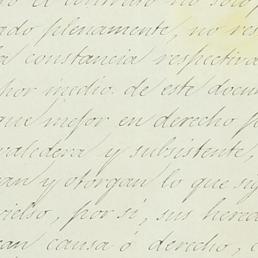 ado plenamente, no res
a constancia respectiva
por medio de este docu
que mejor en derecho p
valedera y subsistente,
an y otorgan lo que sig
ielso, por sí, sus hered
an causa ó derecho, c